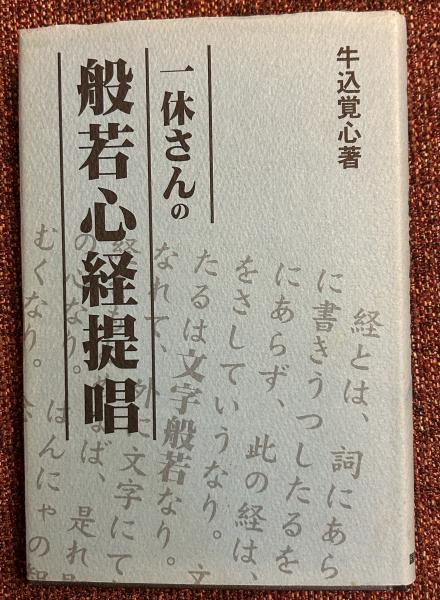 牛込覚心著
一休さんの
般若心経提唱
経とは、詞にあら
に書きうつしたるを
にあらず、此の経は、
をさしていうなり。文
たるは文字般若なり。
なれて、外に文字にて
経 なば、是れ
の心なり。はんにゃの
むくなり。